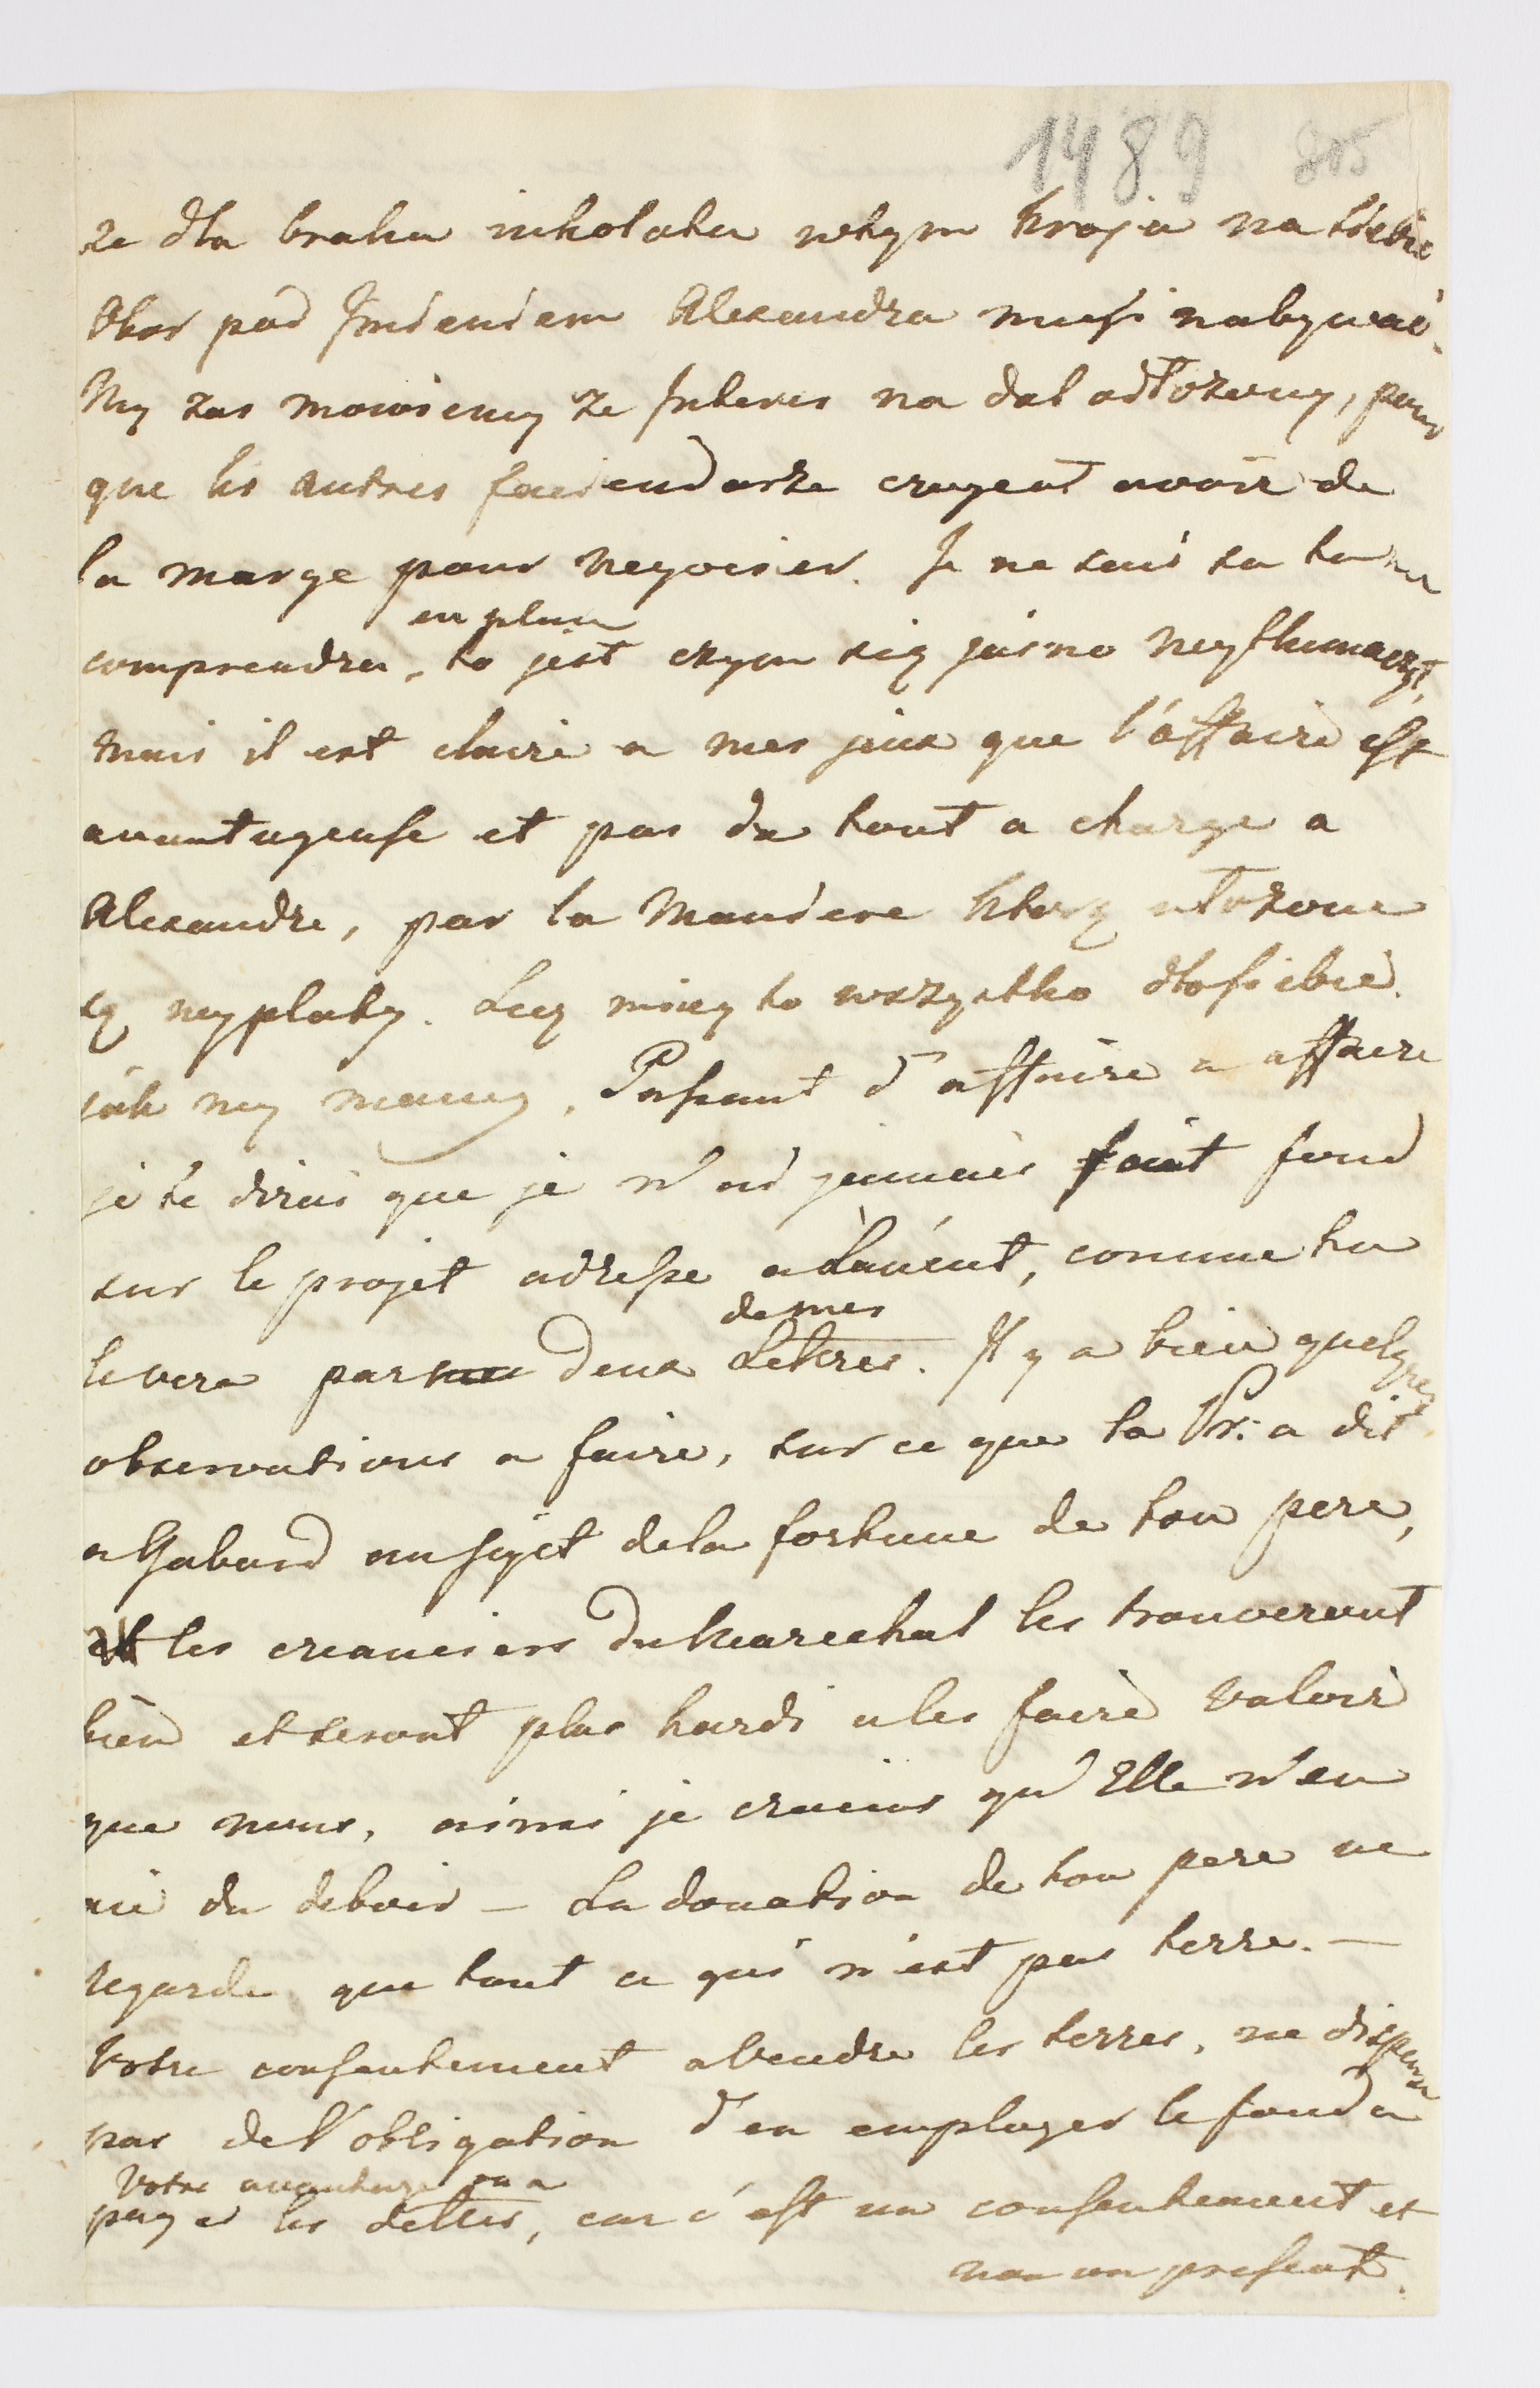 1489 805
ze dla braku inkolatu wtym kraju na siebie
Obor pod Imieniem Alexandra musi nabywać.
My zas mowiemy ze Interes na dal odłożony, pour
que les autres faciendarze croyent avoir de
la marge pour negocier. Je ne sais sa tu me
comprendra, to jest czym się jasno wytłumaczył,
en plein
mais il est claire a mes jeux que l'affaire est
avantageuse et pas du tout a charge a
Alexandre, par la maniere ktorą ułożone
są wypłaty. Lecz miiey to wszystko dlasiebie
jak my mamy. Passant d'affaire a affaire
je te dirai que je n'ai jamais fait fond
sur le projet adresse a Laurent, comme tu
le vera par deux Lettres. Il y a bien quelques
de mes
observations a faire, sur ce que la Pr: a dit
a Gabard au sujet dela fortune de ton pere,
les creanciers du Marechal les trouveront
bien et seront plus hardi a les faire valoir
que nous, ainsi je crains qu'Elle n'en
aie du deboir — La donation de ton pere ne
regarde que tout ce qui n'est pas terre. —
Votre consentement a vendre les terres, ne dispense
pas de l'obligation d'en employer le fond a
Votre avantage ou a
payer les dettes, car c'est un consentement et
non un present.